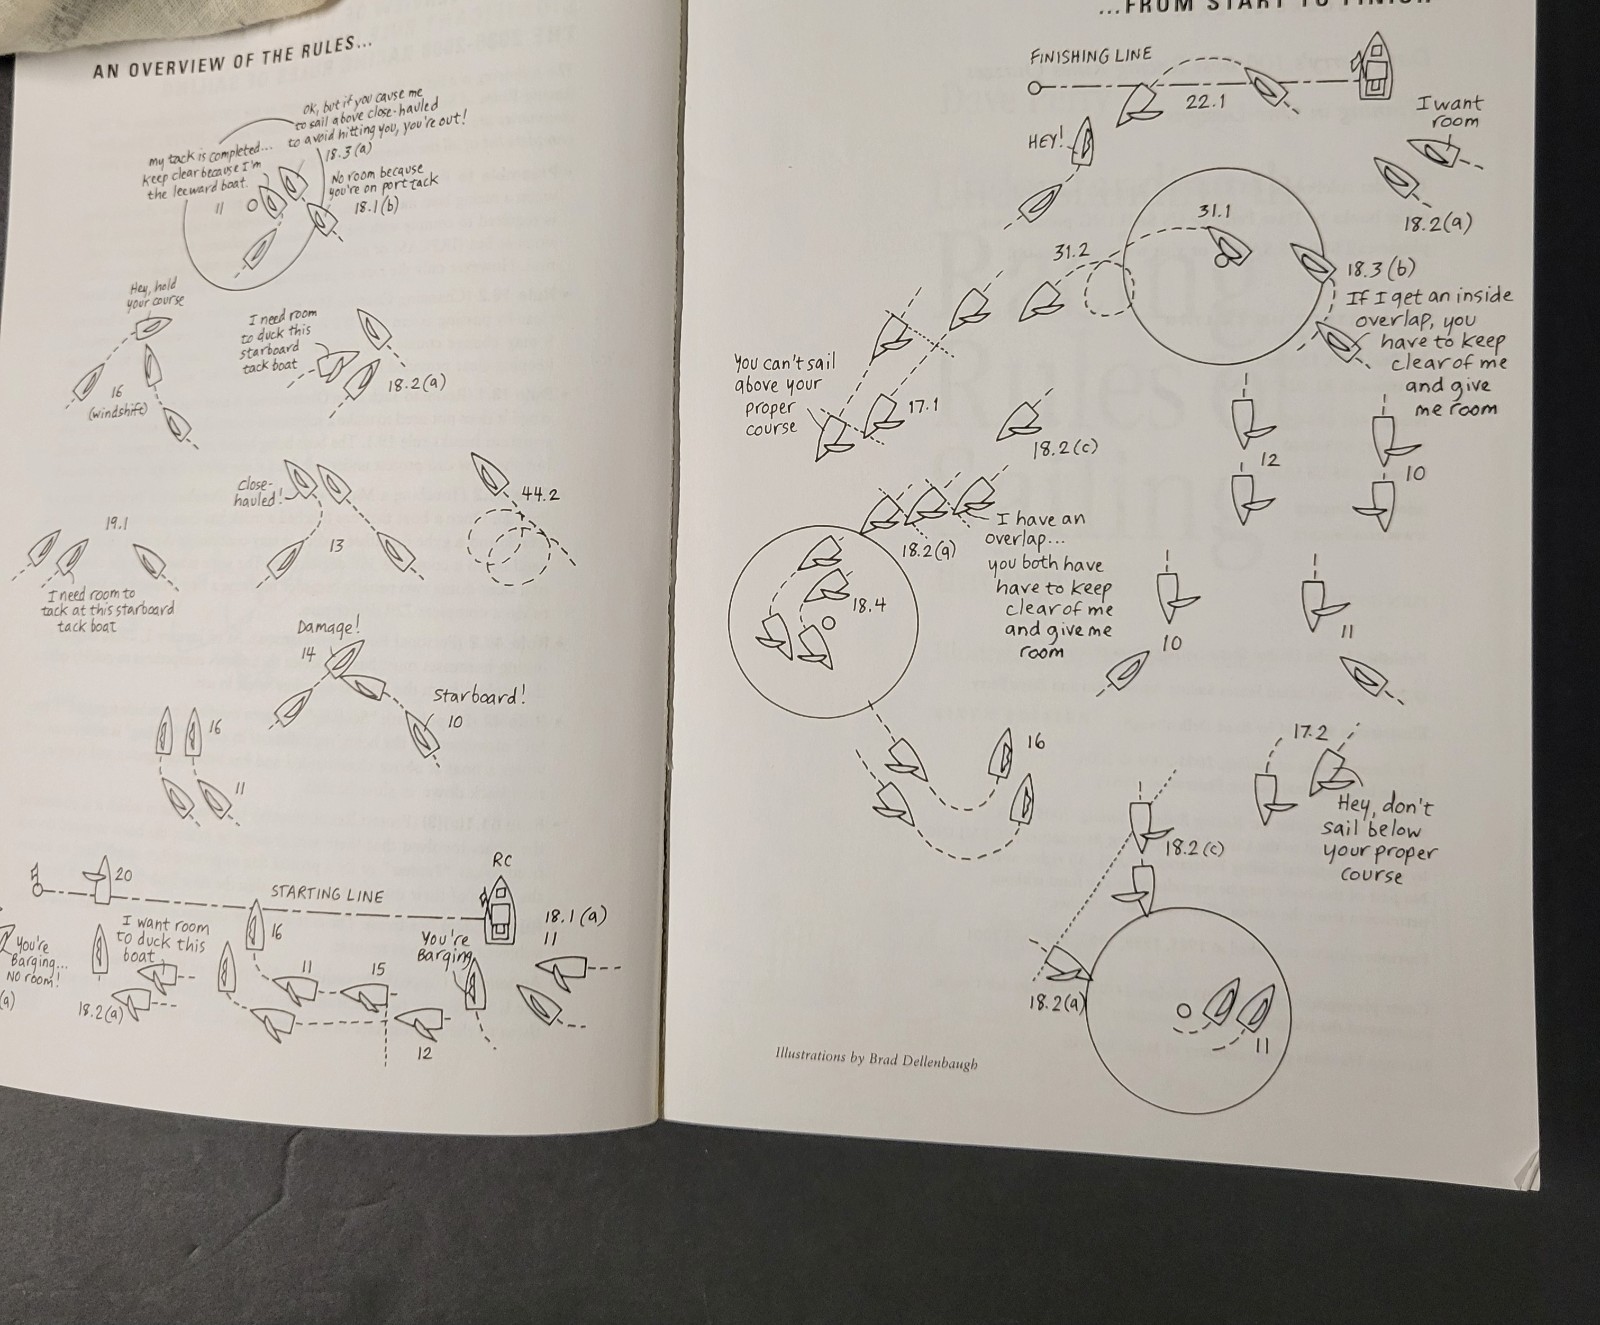 AN OVERVIEW OF THE RULES...
OK, but if you cause me
to sail above close-hauled
to avoid hitting you, you're out!
18.3(a)
my tack is completed...
keep clear because I'm
the leeward boat.
11
No room because
you're on port tack
18.1(b)
Hey, hold
your course
16
(windshift)
I need room
to duck this
starboard
tack boat
18.2(a)
close-
hauled!
13
44.2
19.1
I need room to
tack at this starboard
tack boat
Damage!
14
Starboard!
10
16
11
20
STARTING LINE
RC
You're
Barging...
NO room!
(a)
I want room
to duck this
boat
18.2(a)
16
11
15
12
You're
Barging
18.1(a)
11
...FROM START TO FINISH
FINISHING LINE
22.1
HEY!
I want
room
18.2(a)
31.1
31.2
18.3(b)
If I get an inside
overlap, you
have to keep
clear of me
and give
me room
You can't sail
above your
proper
course
17.1
18.2(c)
12
10
18.2(a)
I have an
overlap...
you both have
have to keep
clear of me
and give me
room
18.4
10
11
16
17.2
Hey, don't
sail below
your proper
course
18.2(c)
18.2(a)
11
Illustrations by Brad Dellenbaugh